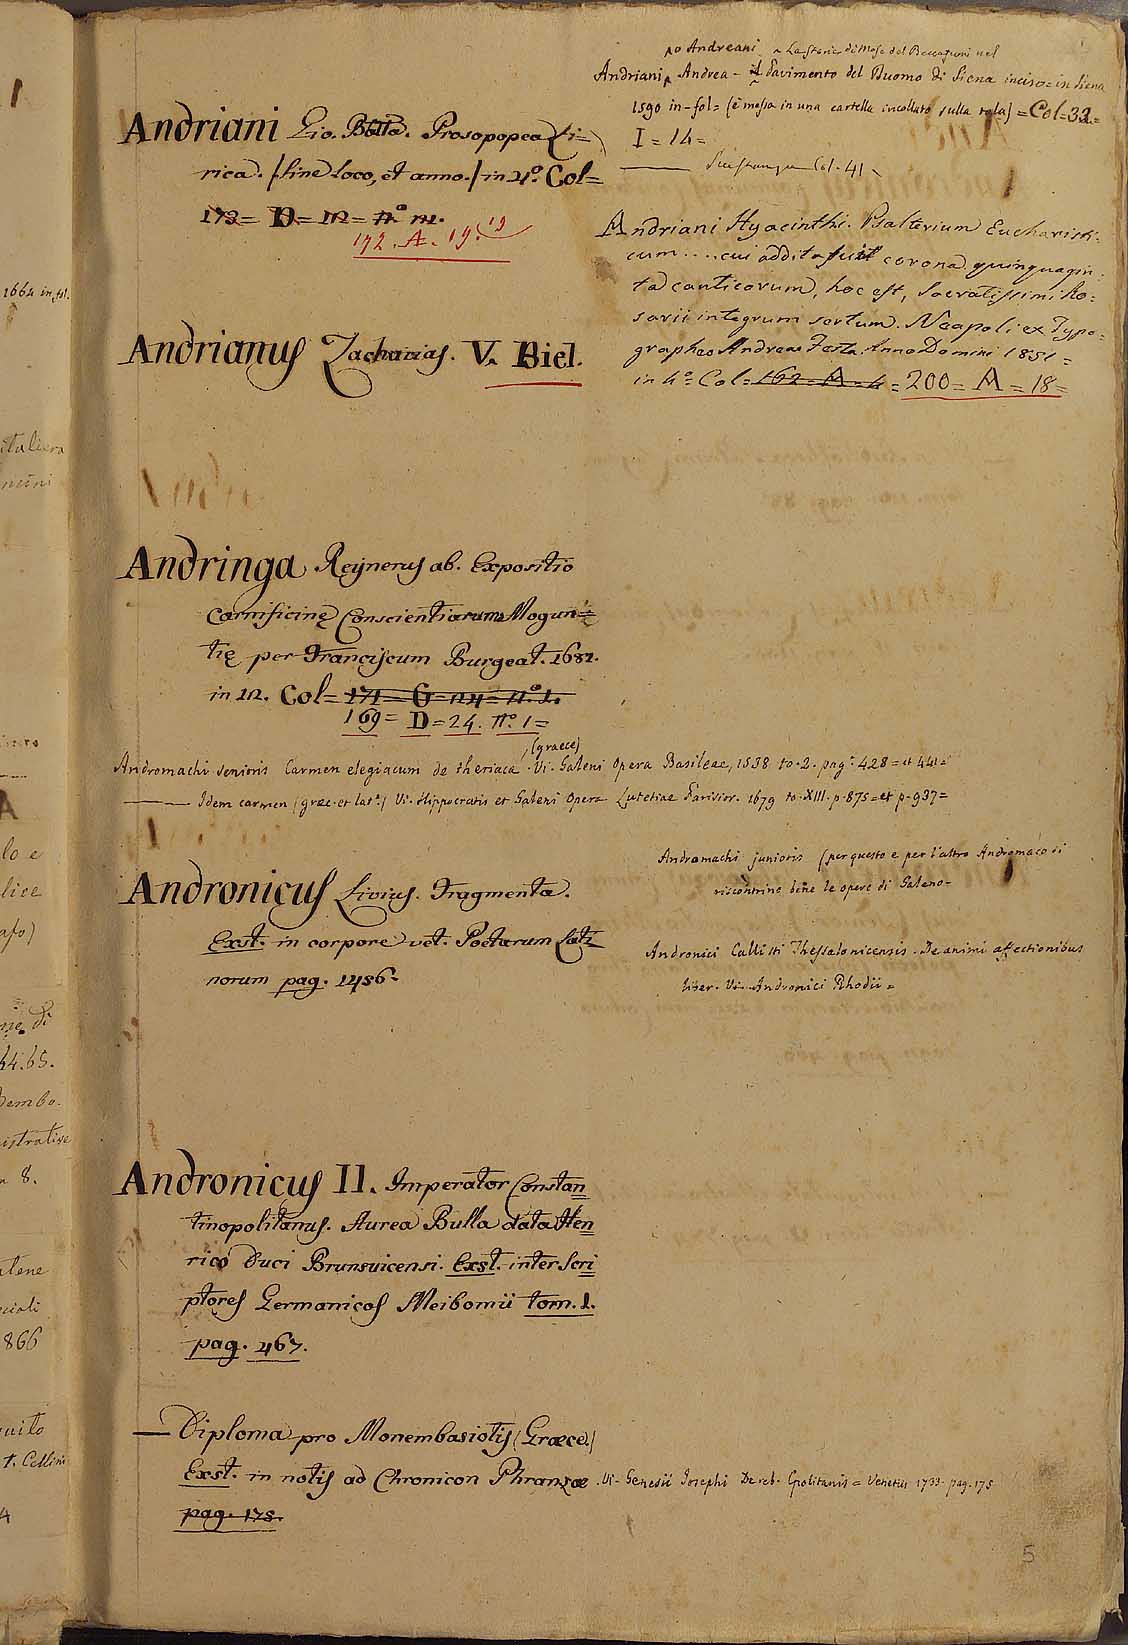 1664 in fol.
Andriani Gio. Batta. Prosopopea Li=
rica. /sine loco, et anno./ in 4º. Col=
173= D= 12= nº 12.
172. A. 19.
Andrianus Zacharias. V. Biel.
po Andreani La storia di Mosè del Beccafumi nel
Andriani, Andrea - il Pavimento del Duomo di Siena inciso = in Siena
1590 in-fol= (è messa in una cartella incollato sulla tela) = Col=32=
I = 14=
Col. 41
Andriani Hyacinthi. Psalterium Eucharisti:
cum .... cui addita fuit corona quinquagin:
ta canticorum, hoc est, Sacratissimi Ro:
sarii integrum sertum. Neapoli ex Typo:
grapheo Andreae Festa. Anno Domini 1851=
in 4º= Col= 162= A= 4 = 200= A = 18=
Andringa Reynerus ab. Expositio
Carnificinę Conscientiarum Mogun=
tię per Franciscum Burgeat. 1682.
in 12. Col= 171= G= 24= nº. 1.
169= D= 24. nº. 1=
(graece)
Andromachi senioris Carmen elegiacum de theriaca. Vi. Galeni Opera Basileae, 1538 to. 2. pag. 428= et 441=
——— Idem carmen (graec. et lat.) Vi. Hippocratis et Galeni Opera Lutetiae Parisior. 1679 to. XIII. p. 875= et p. 937=
Andromachi junioris (per questo e per l'altro Andromaco di
riscontrino bene le opere di Galeno-
Andronicus Livius. Fragmenta.
Exst. in corpore vet. Poetarum Lati
norum pag. 1456.
Andronici Callisti Thessalonicensis. De animi affectionibus
liber. Vi. Andronici Rhodii=
Andronicus II. Imperator Constan
tinopolitanus. Aurea Bulla data Hen
rico Duci Brunsuicensi. Exst. inter Scri
ptores Germanicos Meibomii tom. 1.
pag. 467.
— Diploma pro Monembasiotis (Græce)
Exst. in notis ad Chronicon Phranzæ. Vi. Genesii Josephi De reb. Cpolitanis= Venetiis 1733. pag. 175
pag. 175.
5